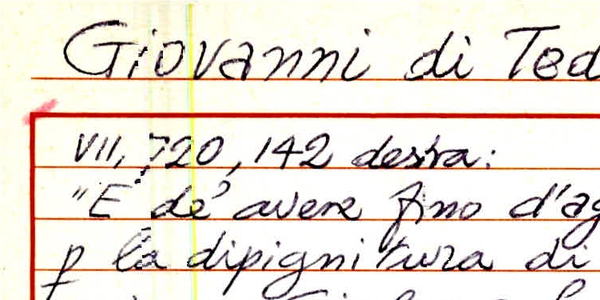 Giovanni di Ted
VII, 720, 142 destra:
"E de' avere fino d'ag
p la dipignitura di